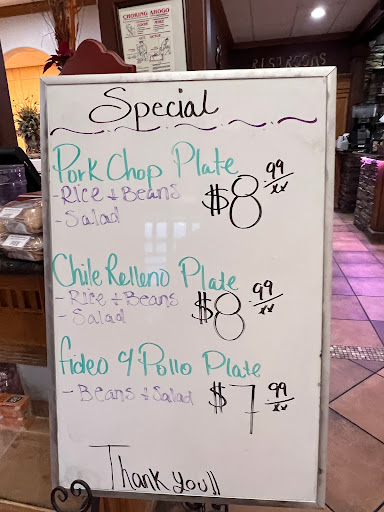 CHOKING AHOGO
RESTROOMS
Special
Pork Chop Plate
- Rice + Beans
- Salad
$8.99/xx
Chile Relleno Plate
- Rice + Beans
- Salad
$8.99/xx
fideo y Pollo Plate
- Beans + Salad
$7.99/xx
Thank you!!